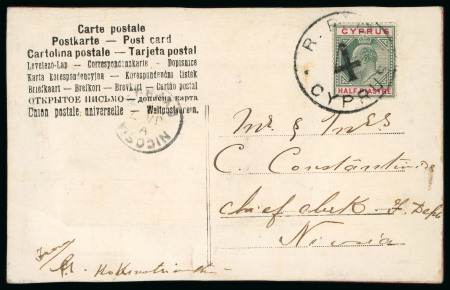 Carte postale
Postkarte — Post card
Cartolina postale — Tarjeta postal
Levelező-Lap — Correspondenzkarte — Dopisnice
Karta korespondencyjna — Korespondenční lístek
Briefkaart — Brefkort — Brevkort — Cartão postal
ОТКРЫТОЕ ПИСЬМО — дописна карта
Union postale universelle — Weltpostverein.
NICOSIA
CYPRUS
HALF PIASTRE
R.
CYPRUS
Mr & Mrs
C. Constantinides
chief clerk F. Dept
Nicosia
from